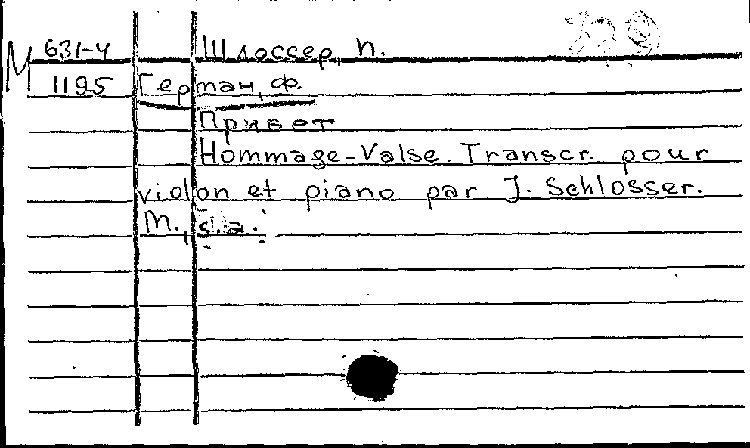 М 631-4 Шлоссер, П.
1195 Герман, Ф.
Привет
Hommage-Valse. Transcr. pour
violon et piano par J. Schlosser.
M., s.a.